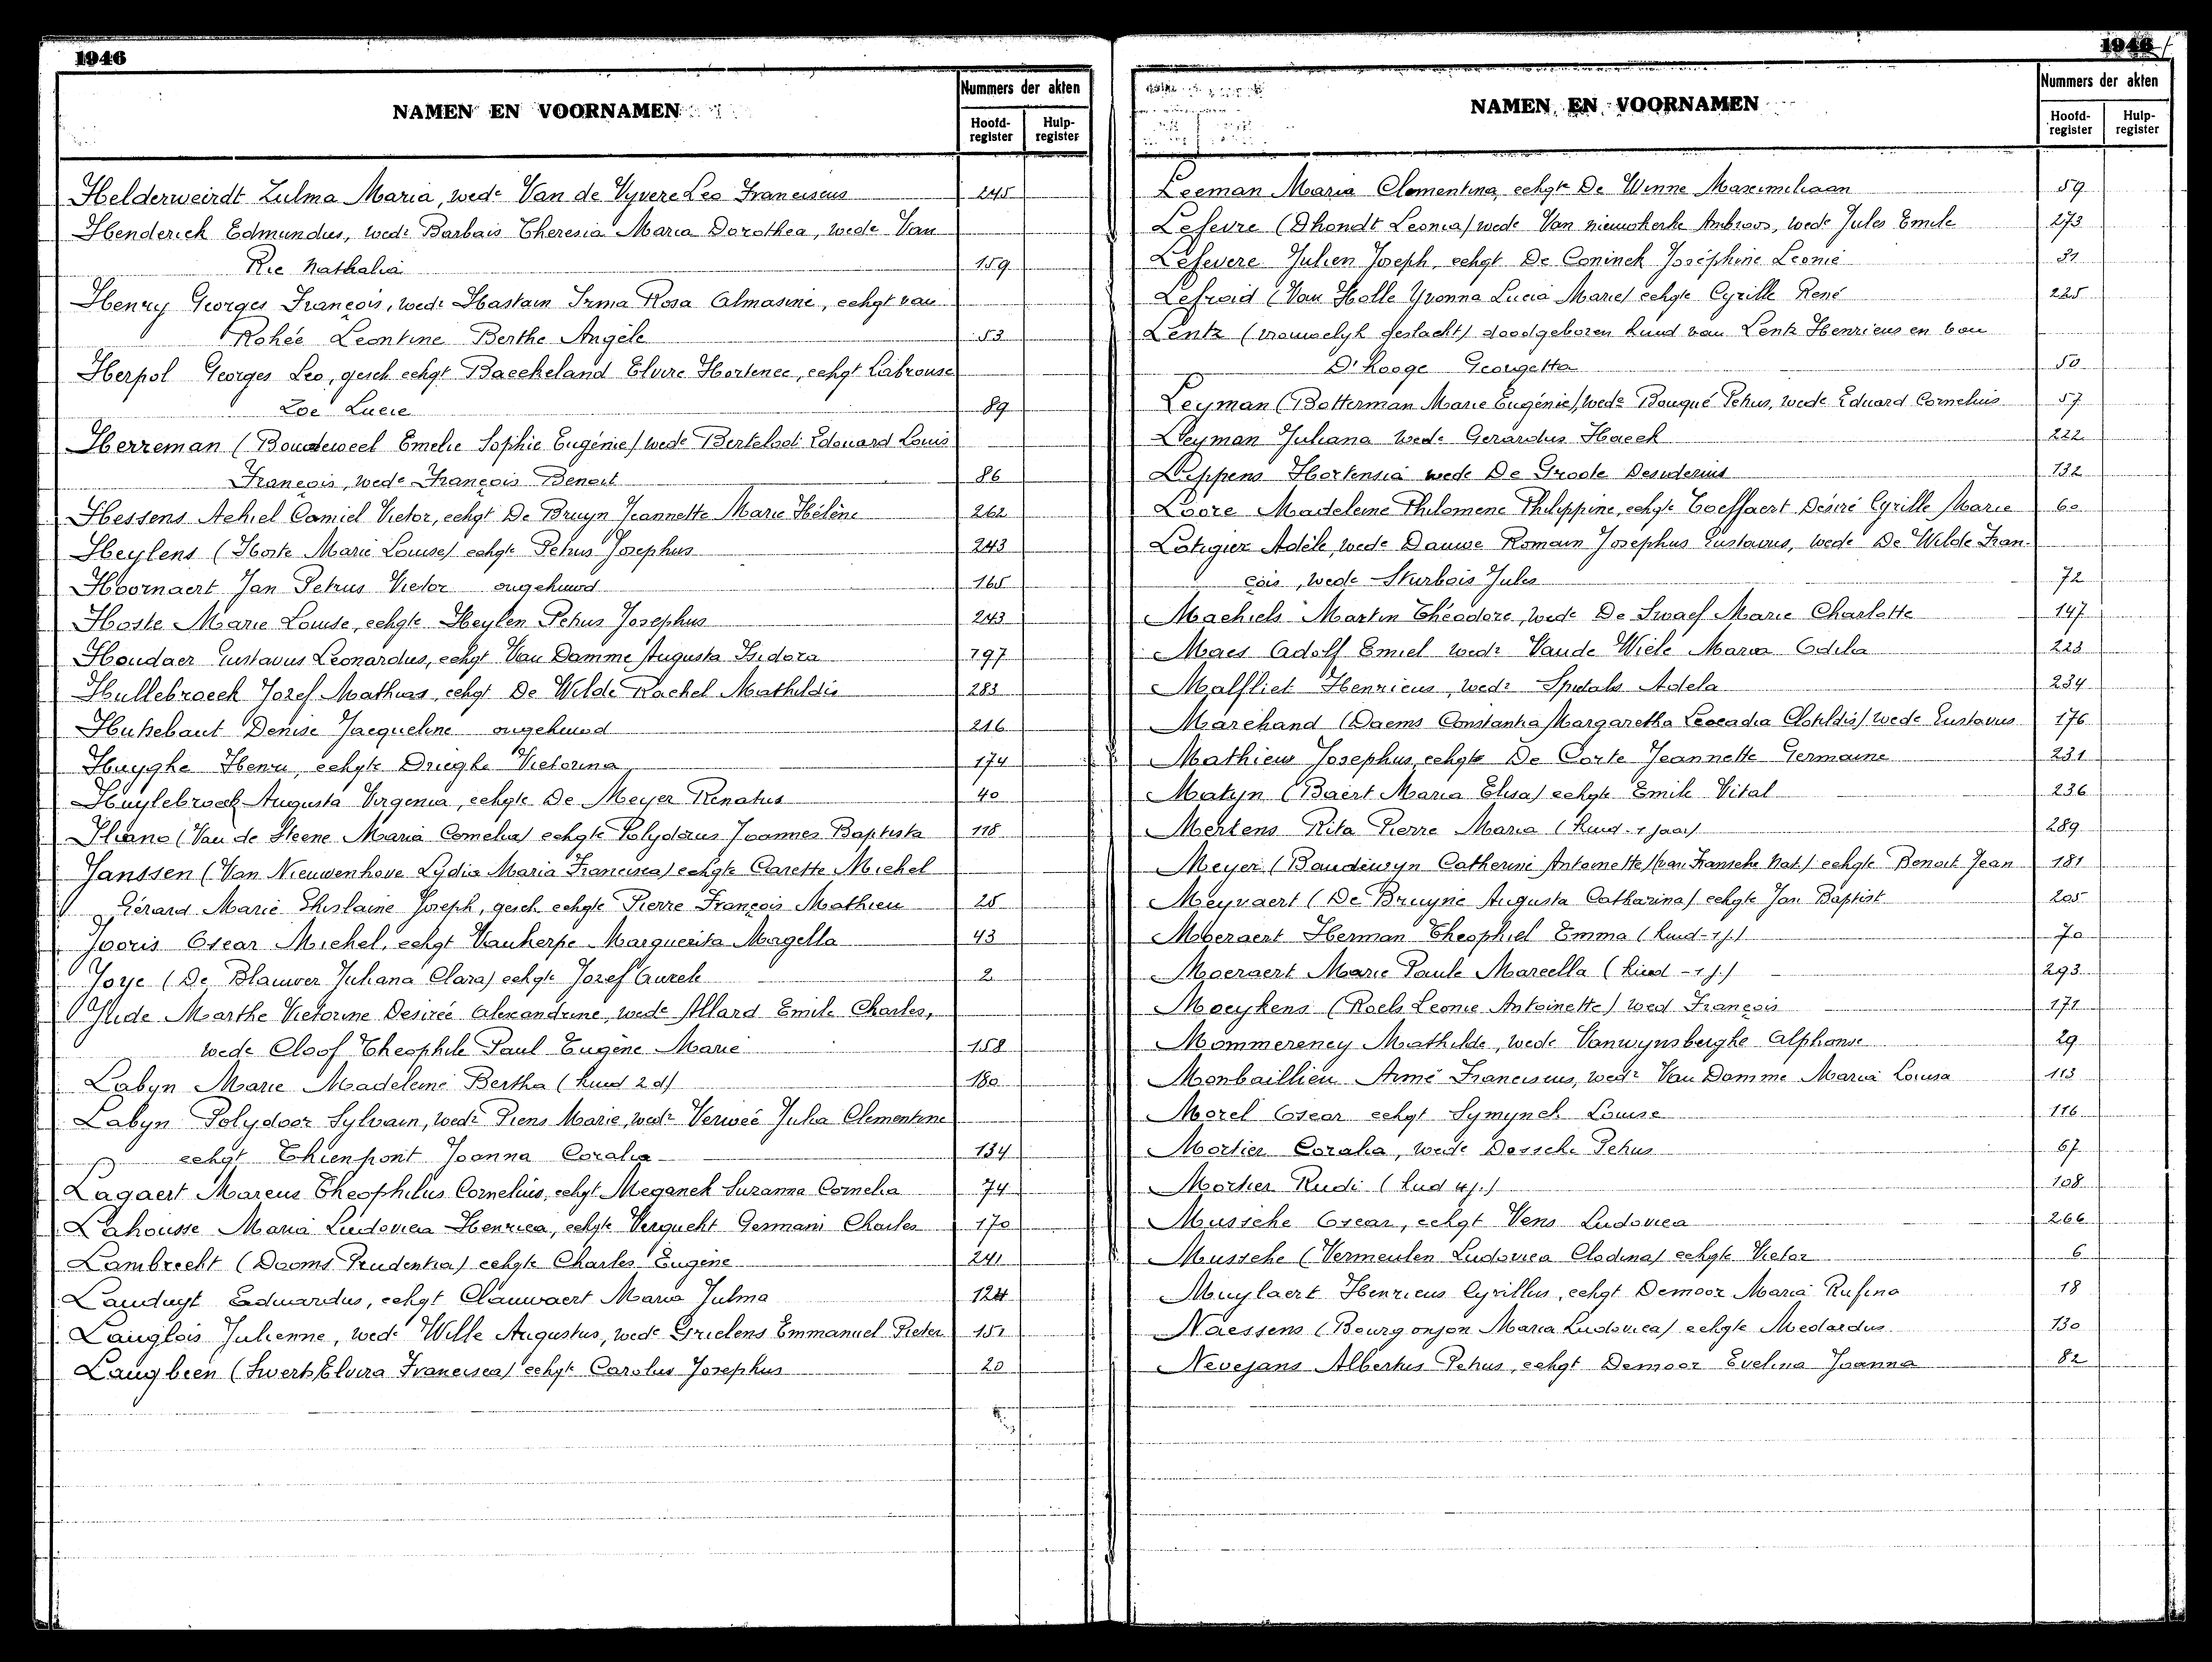 1946
NAMEN EN VOORNAMEN
Nummers der akten
Hoofd-register
Hulp-register
Helderweirdt Zulma Maria, wede Van de Vyvere Leo Franciscus 245
Henderick Edmundus, wedr Barbais Theresia Maria Dorothea, wede Van
Rie Nathalia 159
Henry Georges François, wedr Hastain Irma Rosa Almasine, echgt van
Rohée Leontine Berthe Angèle 53
Herpol Georges Leo, gesch echgt Baeckeland Elvire Hortence, echgt Labrouse
Zoé Lucie 89
Herreman (Boudeweel Emelie Sophie Eugénie) wede Bertelsot Edouard Louis
François, wede François Benoit 86
Hessens Achiel Camiel Victor, echgt De Bruyn Jeannette Marie Hélène 262
Heylens (Hoste Marie Louise) echgte Petrus Josephus 243
Hoornaert Jan Petrus Victor ongehuwd 165
Hoste Marie Louise, echgte Heylen Petrus Josephus 243
Houdaer Gustavus Leonardus, echgt Van Damme Augusta Isidora 197
Hullebroeck Jozef Mathias, echgt De Wilde Rachel Mathildis 283
Hutsebaut Denise Jacqueline ongehuwd 216
Huyghe Henri, echgte Drieghe Victorina 174
Huylebroeck Augusta Virgenia, echgte De Meyer Renatus 40
Iliano (Van de Steene Maria Cornelia) echgte Polydorus Joannes Baptista 118
Janssen (Van Nieuwenhove Lydia Maria Francisca) echgte Carette Michel
Gérard Marie Ghislaine Joseph, gesch echgte Pierre François Mathieu 25
Jooris Oscar Michel, echgt Vanherpe Marguerita Magella 43
Joye (De Blauwer Juliana Clara) echgte Jozef Aurele 2
Jude Marthe Victorine Desirée Alexandrine, wede Allard Emile Charles,
wede Cloof Theophile Paul Eugène Marie 158
Labyn Marie Madeleine Bertha (kind 2 d) 180
Labyn Polydoor Sylvain, wedr Piens Marie, wedr Verweé Julia Clementine
echgt Thienpont Joanna Coralia 134
Lagaert Marcus Theophilus Cornelius, echgt Meganck Suzanna Cornelia 74
Lahousse Maria Ludovica Henrica, echgte Vergucht Germain Charles 170
Lambrecht (Dooms Prudentia) echgte Charles Eugène 241
Landuyt Eduardus, echgt Clauwaert Maria Julma 124
Langlois Julienne, wede Wille Augustus, wede Grielens Emmanuel Pieter 151
Laugbeen (Swerts Elvira Francisca) echgte Carolus Josephus 20
1946
NAMEN EN VOORNAMEN
Nummers der akten
Hoofd-register
Hulp-register
Leeman Maria Clementina, echgte De Winne Maximiliaan 59
Lefevre (Dhondt Leonia) wede Van nieuwkerke Ambroos, wede Jules Emile 273
Lefevere Julien Joseph, echgt De Coninck Joséphine Leonie 31
Lefroid (Van Holle Yvonna Lucia Marie) echgte Cyrille René 225
Lentz (vrouwelyk geslacht) doodgeboren kind van Lentz Henricus en van
D'Hooge Georgetta 50
Leyman (Botterman Marie Eugénie), wede Bouqué Petrus, wede Eduard Cornelius 57
Leyman Juliana wede Gerardus Haeck 222
Lippens Hortensia wede De Groote Desiderius 132
Loore Madeleine Philomene Philippine, echgte Coeffaert Désiré Cyrille Marie 60
Lotigiez Adèle, wede Dauwe Romain Josephus Gustavus, wede De Wilde Fran-
çois, wede Sturbois Jules 72
Machiels Martin Théodore, wedr De Swaef Marie Charlotte 147
Maes Adolf Emiel wedr Vande Wiele Maria Odila 223
Malfliet Henricus, wedr Spitals Adela 234
Marchand (Daems Constantia Margaretha Leocadia Clotildis) wede Gustavus 176
Mathieu Josephus, echgte De Corte Jeannette Germaine 231
Matyn (Baert Maria Elisa) echgte Emile Vital 236
Mertens Rita Pierre Maria (kind - 1 jaar) 289
Meyer (Baudewyn Catherine Antoinette) (van Fransche Nat.) echgte Benoit Jean 181
Meyvaert (De Bruyne Augusta Catharina) echgte Jan Baptist 205
Moeraert Herman Theophiel Emma (kind - 1 j.) 70
Moeraert Marie Paule Marcella (kind - 1 j.) 293
Moeykens (Roels Leonie Antoinette) wed François 171
Mommerency Mathilde, wede Vanwynsberghe Alphonse 29
Monbaillieu Aimé Franciscus, wedr Van Damme Maria Louisa 113
Morel Oscar echgt Symynck Louise 116
Mortier Coralia, wede Dossche Petrus 67
Mortier Rudi (kind 4 j.) 108
Mussche Oscar, echgt Vens Ludovica 266
Mussche (Vermeulen Ludovica Clodina) echgte Victor 6
Muylaert Henricus Cyrillus, echgt Demoor Maria Rufina 18
Naessens (Bourgonjon Maria Ludovica) echgte Medardus 130
Nevejans Albertus Petrus, echgt Demoor Evelina Joanna 82